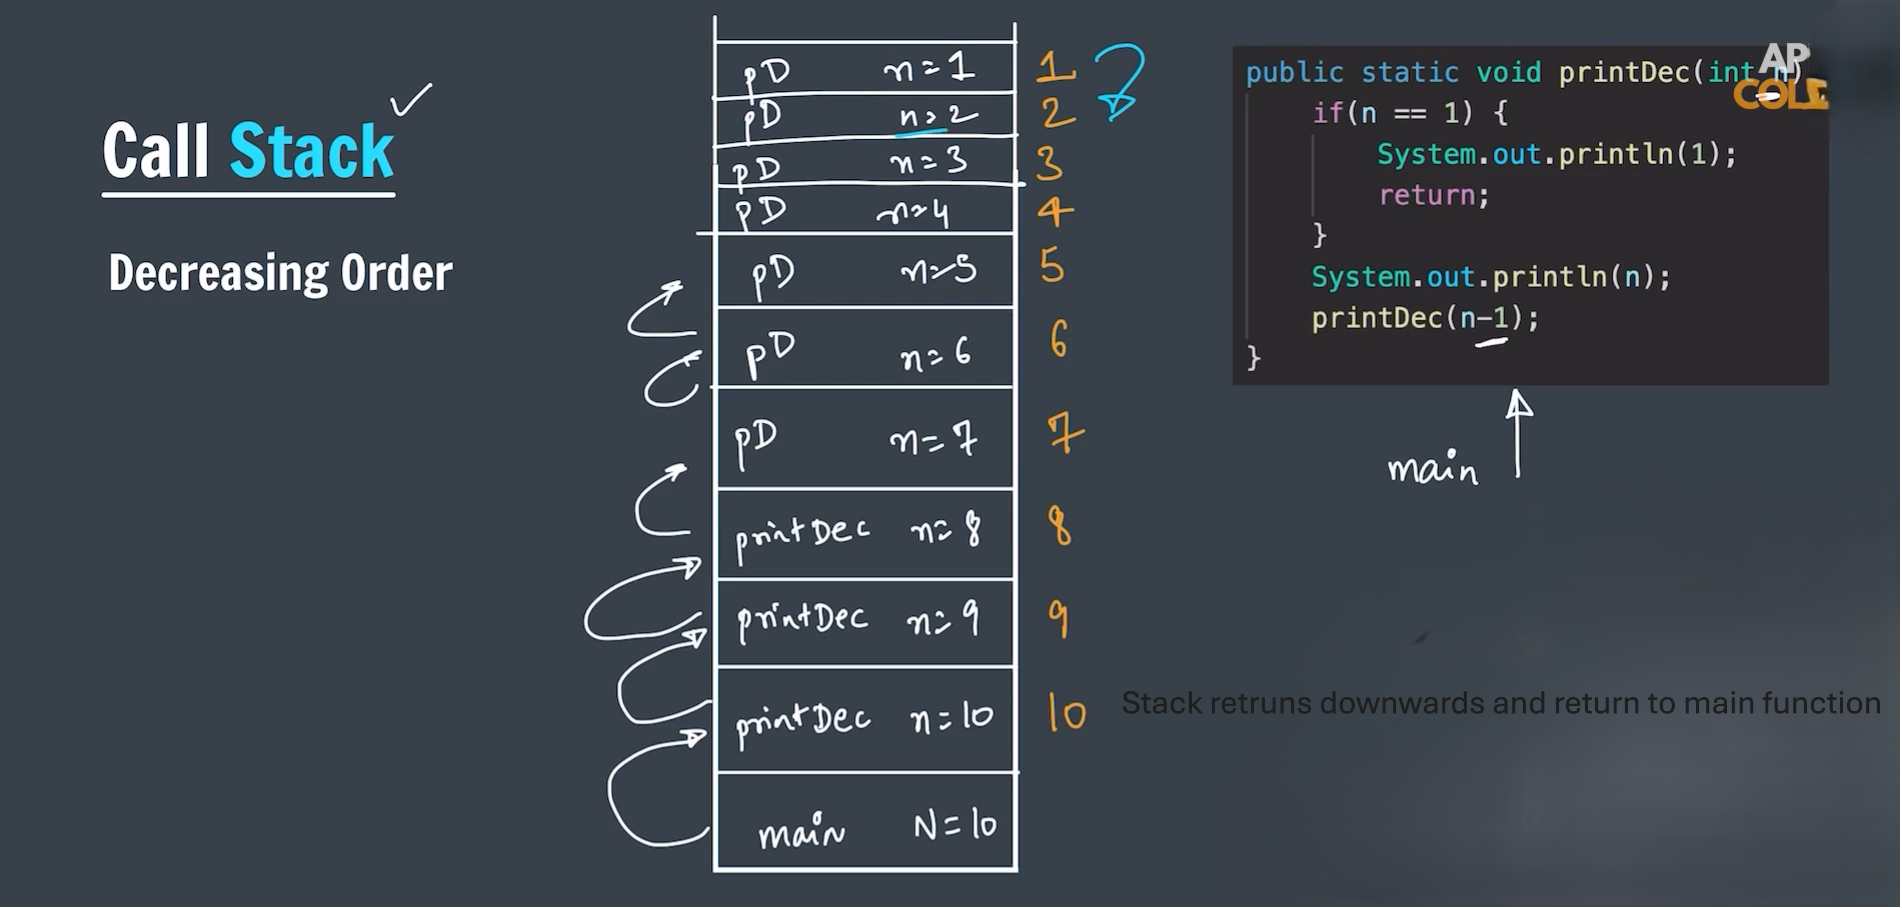 Call Stack
Decreasing Order
pD n=1 1
pD n=2 2
pD n=3 3
pD n=4 4
pD n=5 5
pD n=6 6
pD n=7 7
printDec n=8 8
printDec n=9 9
printDec n=10 10
main N=10
public static void printDec(int n)
if(n == 1) {
System.out.println(1);
return;
}
System.out.println(n);
printDec(n-1);
}
AP
COLE
main
Stack retruns downwards and return to main function